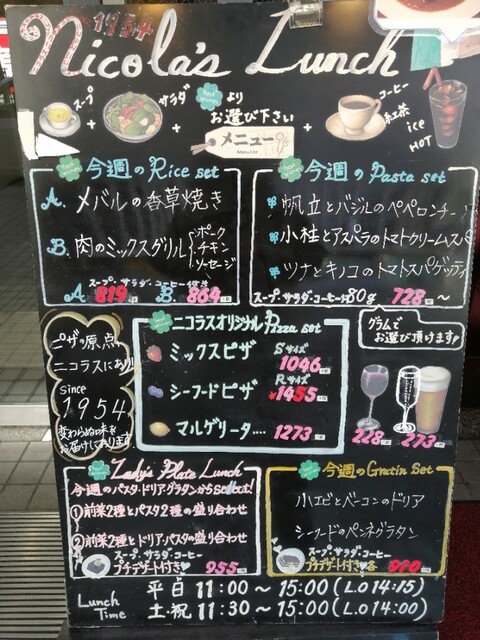 1954
Nicola's Lunch
スープ + サラダ + より お選び下さい + コーヒー 紅茶 ice HOT
メニュー
今週のRice set
A. メバルの香草焼き
B. 肉のミックスグリル ポーク チキン ソーセージ
スープ・サラダ・コーヒー付き
A. 819 B. 864
今週のPasta set
帆立とバジルのペペロンチー
小柱とアスパラのトマトクリームスパ
ツナとキノコのトマトスパゲッティ
スープ・サラダ・コーヒー付 80g 728 ~
グラムで
お選び頂けます!
228 273
ピザの原点
ニコラスにあり
since
1954
変わらぬ味を
お届けしております
ニコラスオリジナル Pizza set
ミックスピザ Sサイズ 1046
シーフードピザ Rサイズ ¥1455
マルゲリータ.... 1273
Lady's Plate Lunch
今週のパスタ・ドリア・グラタンからSelect!
① 前菜2種とパスタ2種の盛り合わせ
② 前菜2種とドリア・パスタの盛り合わせ
スープ・サラダ・コーヒー
プチデザート付き♥ 955
今週のGratin Set
小エビとベーコンのドリア
シーフードのペンネグラタン
スープ・サラダ・コーヒー
プチデザート付き♥各 910
Lunch Time
平日 11:00~15:00 (L.O 14:15)
土祝 11:30~15:00 (L.O 14:00)